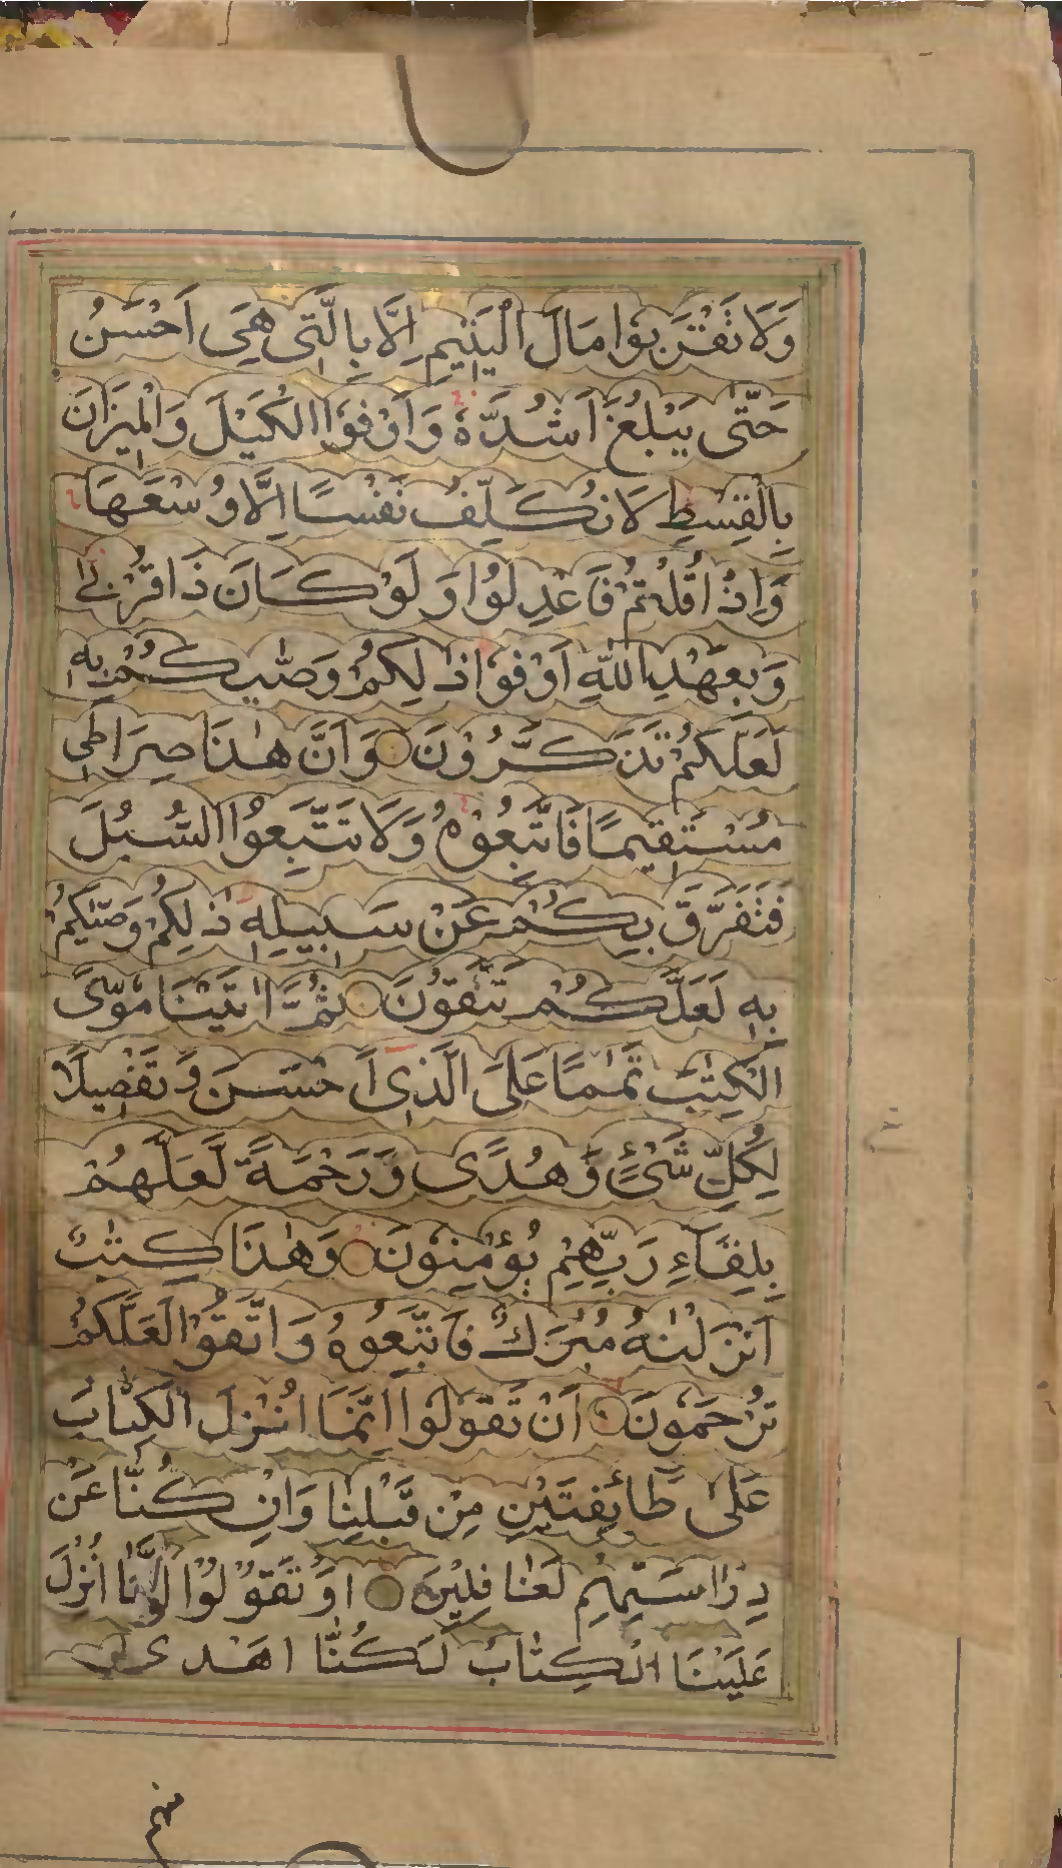 وَلَا تَقْرَبُوا مَالَ الْيَتِيمِ اِلَّا بِالَّتِى هِىَ اَحْسَنُ
حَتّٰى يَبْلُغَ اَشُدَّهٗ وَاَوْفُوا الْكَيْلَ وَالْمِيْزَانَ
بِالْقِسْطِ لَا نُكَلِّفُ نَفْسًا اِلَّا وُسْعَهَا
وَاِذَا قُلْتُمْ فَاعْدِلُوْا وَلَوْ كَانَ ذَا قُرْبٰى
وَبِعَهْدِ اللّٰهِ اَوْفُوْا ذٰلِكُمْ وَصّٰىكُمْ بِهٖ
لَعَلَّكُمْ تَذَكَّرُوْنَ وَاَنَّ هٰذَا صِرَاطِى
مُسْتَقِيْمًا فَاتَّبِعُوْهُ وَلَا تَتَّبِعُوا السُّبُلَ
فَتَفَرَّقَ بِكُمْ عَنْ سَبِيْلِهٖ ذٰلِكُمْ وَصّٰىكُمْ
بِهٖ لَعَلَّكُمْ تَتَّقُوْنَ ثُمَّ اٰتَيْنَا مُوْسَى
الْكِتٰبَ تَمَامًا عَلَى الَّذِى اَحْسَنَ وَتَفْصِيْلًا
لِكُلِّ شَىْءٍ وَّهُدًى وَّرَحْمَةً لَّعَلَّهُمْ
بِلِقَآءِ رَبِّهِمْ يُؤْمِنُوْنَ وَهٰذَا كِتٰبٌ
اَنْزَلْنٰهُ مُبٰرَكٌ فَاتَّبِعُوْهُ وَاتَّقُوْا لَعَلَّكُمْ
تُرْحَمُوْنَ اَنْ تَقُوْلُوْا اِنَّمَا اُنْزِلَ الْكِتَابُ
عَلٰى طَائِفَتَيْنِ مِنْ قَبْلِنَا وَاِنْ كُنَّا عَنْ
دِرَاسَتِهِمْ لَغَافِلِيْنَ اَوْ تَقُوْلُوْا لَوْ اَنَّا اُنْزِلَ
عَلَيْنَا الْكِتَابُ لَكُنَّا اَهْدٰى